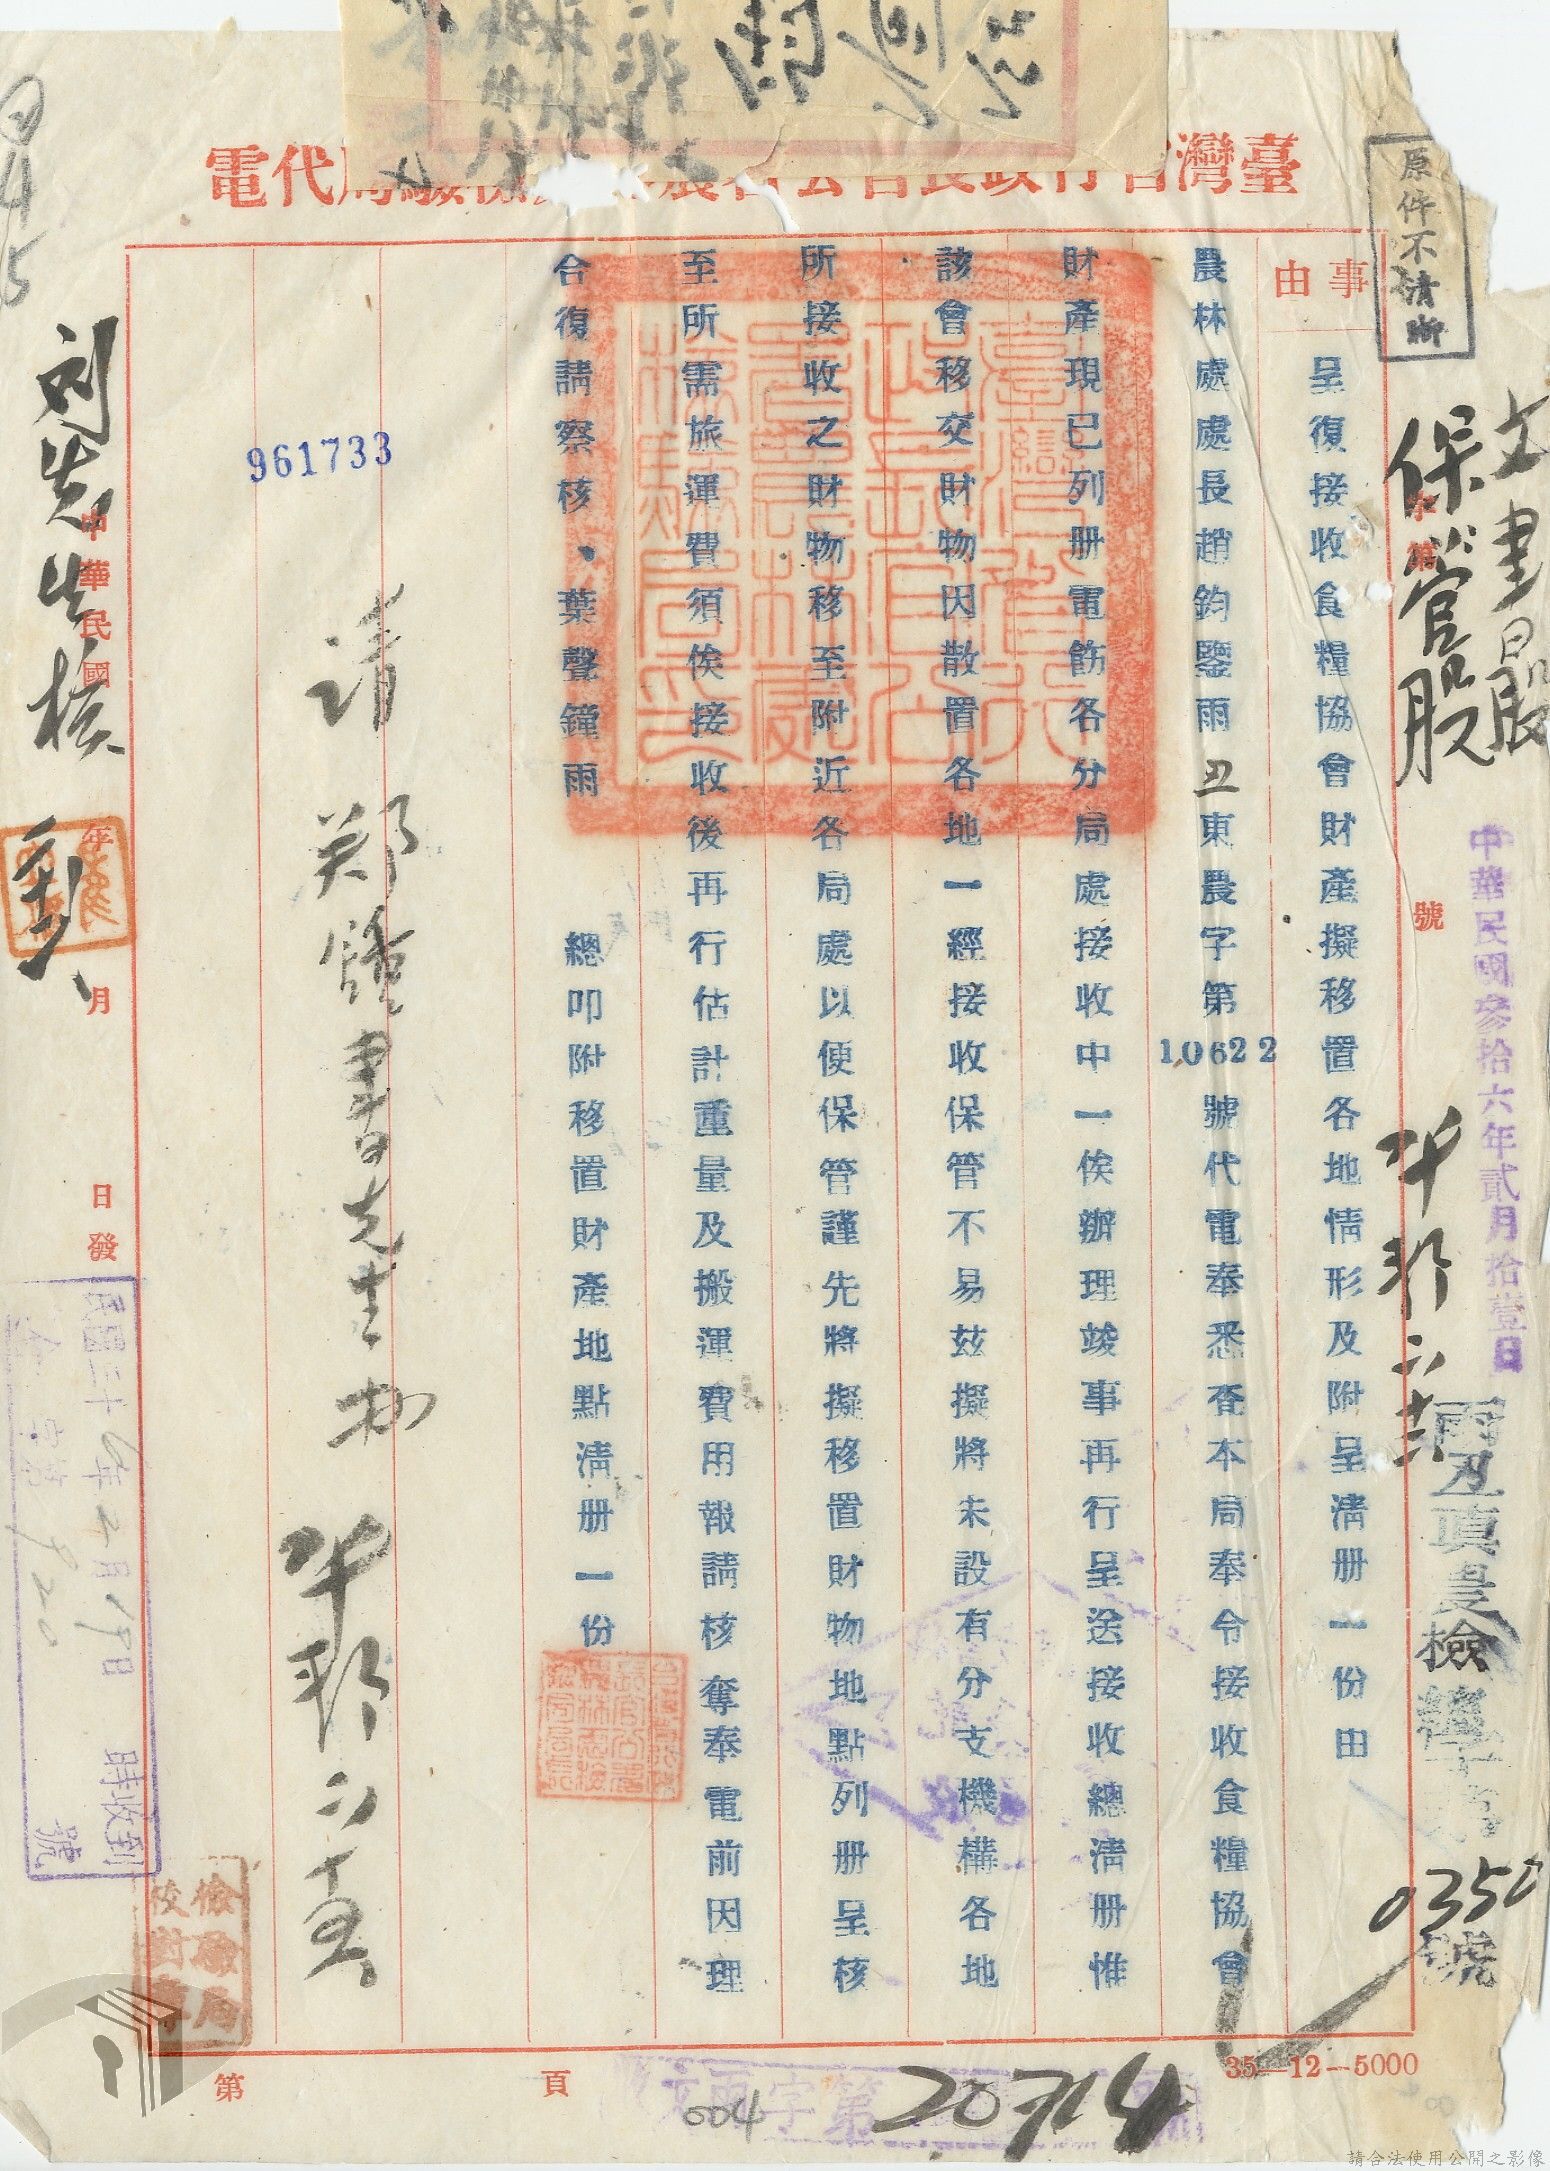 臺灣省行政長官公署農林處檢驗局代電
原件不清晰
文書股
保管股
字第
號
中華民國參拾六年貳月拾壹日
0350
號
事由
呈復接收食糧協會財產擬移置各地情形及附呈清册一份由
農林處處長趙鈞鑒雨丑東農字第10622號代電奉悉查本局奉令接收食糧協會
財產現已列册電飭各分局處接收中一俟辦理竣事再行呈送接收總清册惟
該會移交財物因散置各地一經接收保管不易茲擬將未設有分支機構各地
所接收之財物移至附近各局處以便保管謹先將擬移置財物地點列册呈核
至所需旅運費須俟接收後再行估計重量及搬運費用報請核奪奉電前因理
合復請察核、葉聲鐘雨　　總叩附移置財產地點清册一份
961733
請鄭鍾書先生
刘先生核
中華民國
年
月
日發
民國三十六年二月19日
時收到
號
檢驗局
校對章
第
頁
004
20714
35—12—5000
請合法使用公開之影像